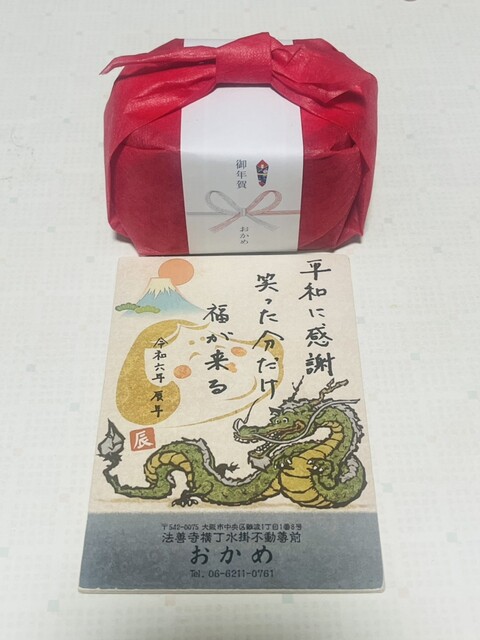 御年賀
おかめ
平和に感謝
笑った分だけ
福が来る
令和六年 辰年
辰
〒542-0075 大阪市中央区難波1丁目1番8号
法善寺横丁水掛不動尊前
おかめ
Tel. 06-6211-0761